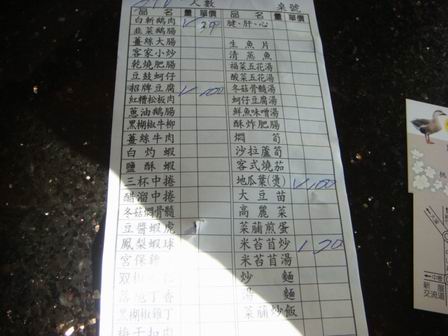 人數 桌號
品名 量 單價 品名 量 單價
白斬鵝肉 腱·肝·心
韭菜鵝腸
薑絲大腸 生魚片
客家小炒 清蒸魚
乾燒肥腸 福菜五花湯
豆鼓蚵仔 酸菜五花湯
招牌豆腐 100 冬菇骨髓湯
紅糟松板肉 蚵仔豆腐湯
蔥油鵝腸 鮮魚味噌湯
黑楜椒牛柳 酥炸肥腸
薑絲牛肉 燜筍
白灼蝦 沙拉蘆筍
鹽酥蝦 客式燒茄
三杯中捲 地瓜葉(燙) 100
醋溜中捲 大豆苗
冬菇燜骨髓 高麗菜
豆醬蝦虎 菜脯煎蛋
鳳梨蝦球 米苔苜炒 120
宮保 米苔苜湯
炒麵
丁香 湯麵
黑楜椒雞丁 菜脯炒飯
梅干扣肉